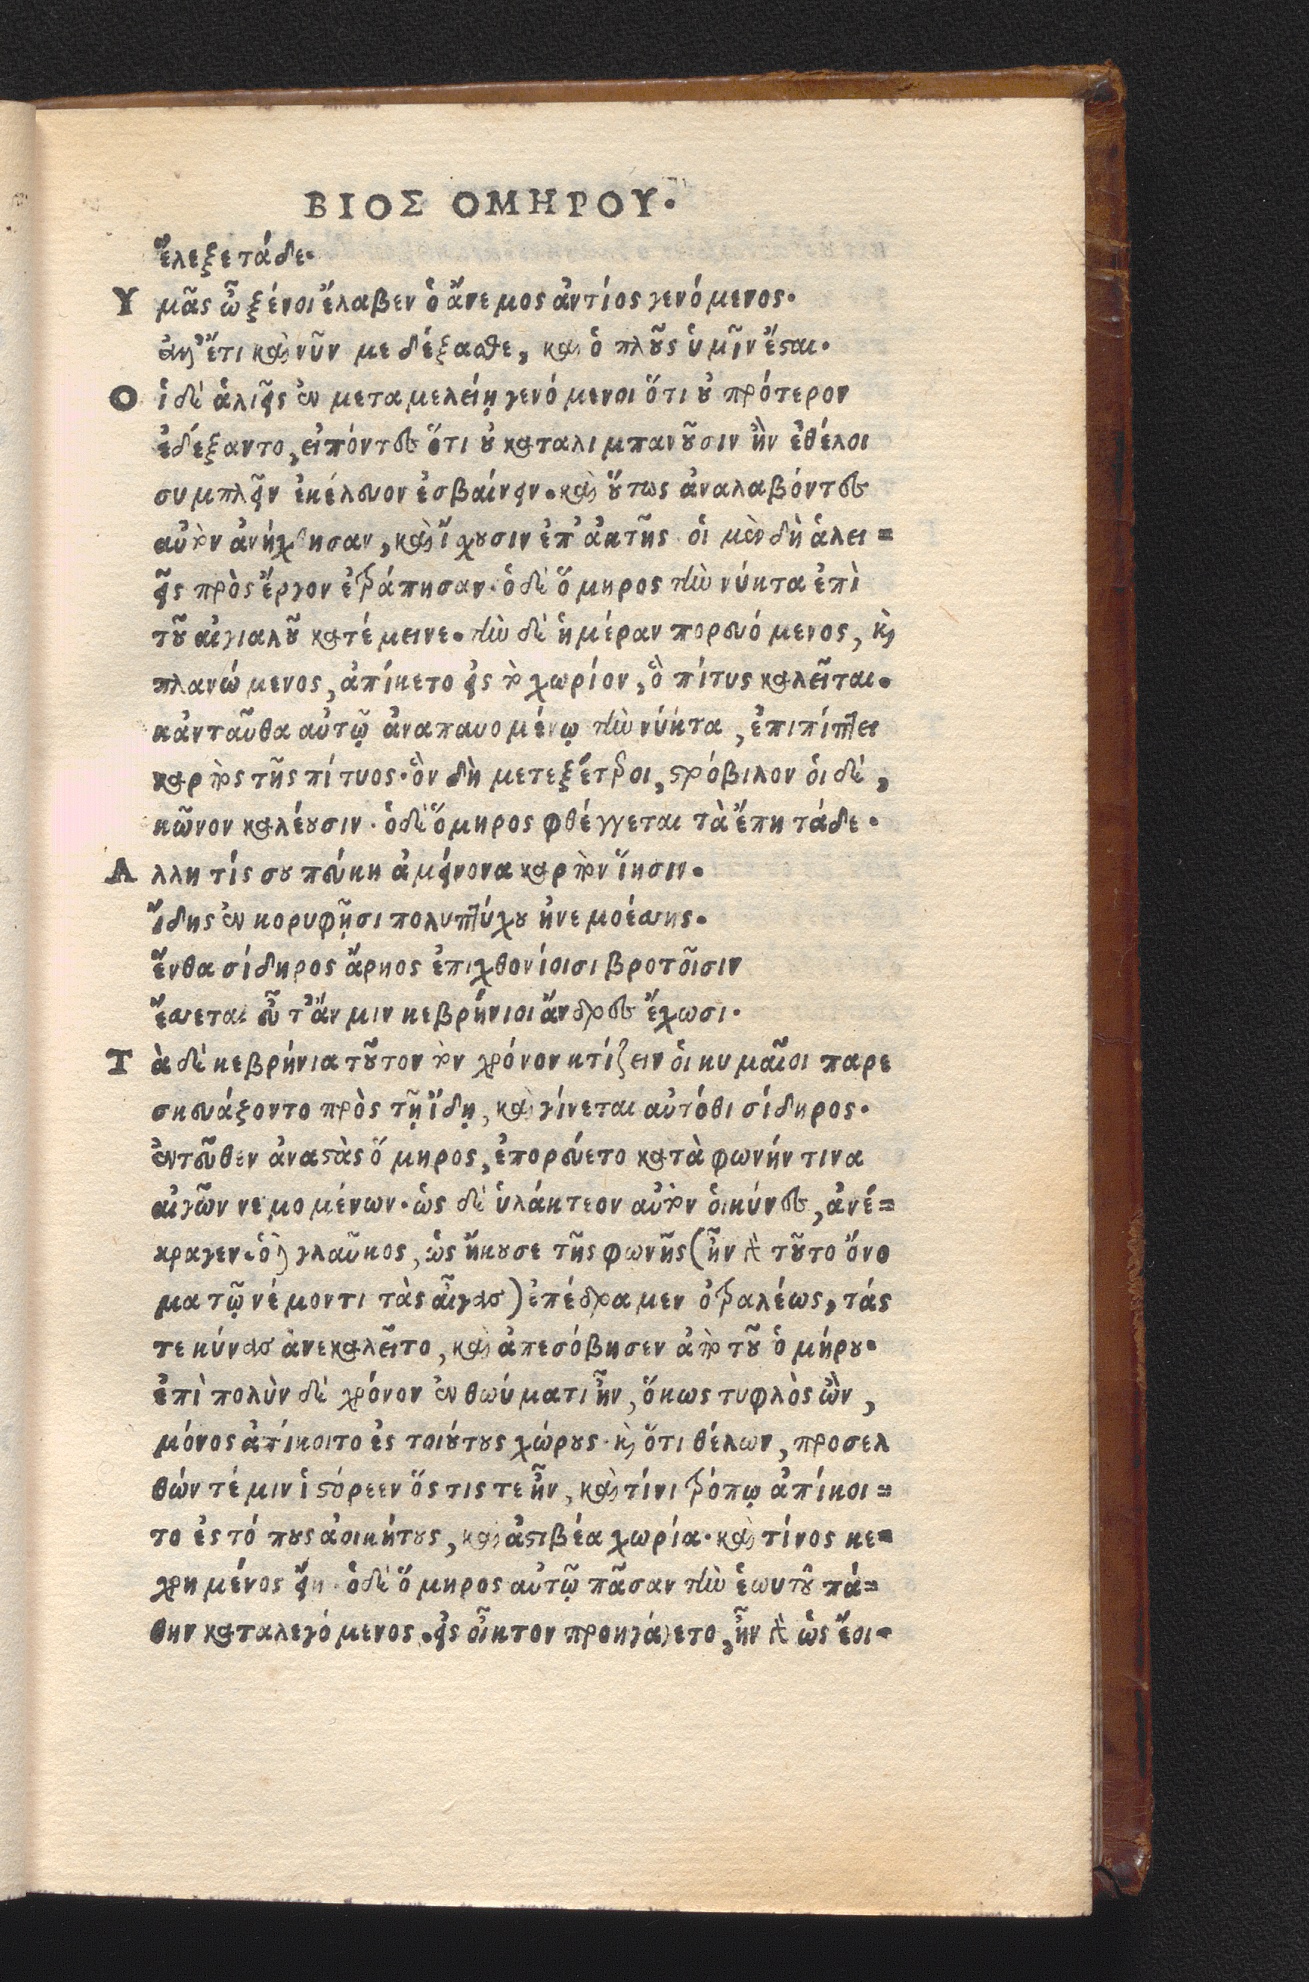 ΒΙΟΣ ΟΜΗΡΟΥ.
ἔλεξε τάδε.
Υμᾶς ὦ ξένοι ἔλαβεν ὁ ἄνεμος ἀντίος γενόμενος.
ἀλλ' ἔτι καὶ νῦν με δέξασθε, καὶ ὁ πλοῦς ὑμῖν ἔσται.
Οἱ δὲ ἁλιεῖς ἐν μεταμελείῃ γενόμενοι ὅτι οὐ πρότερον
ἐδέξαντο, εἰπόντες ὅτι οὐ καταλιμπανοῦσιν ἢν ἐθέλοι
συμπλεῖν ἐκέλευον ἐσβαίνειν. καὶ οὕτως ἀναλαβόντες
αὐτὸν ἀνήχθησαν, καὶ ἴχουσιν ἐπ' ἀκτῆς. οἱ μὲν δὴ ἁλει=
εῖς πρὸς ἔργον ἐτράπησαν. ὁ δὲ ὅμηρος τὴν νύκτα ἐπὶ
τοῦ αἰγιαλοῦ κατέμεινε. τὴν δὲ ἡμέραν πορευόμενος, καὶ
πλανώμενος, ἀπίκετο εἰς τὸ χωρίον, ὃ πίτυς καλεῖται.
κἀνταῦθα αὐτῷ ἀναπαυομένῳ τὴν νύκτα, ἐπιπίπτει
καρπὸς τῆς πίτυος. ὃν δὴ μετεξέτεροι, στρόβιλον οἱ δὲ,
κῶνον καλέουσιν. ὁ δὲ ὅμηρος φθέγγεται τὰ ἔπη τάδε.
Αλλη τίς σου πεύκη ἀμείνονα καρπὸν ἵησιν.
ἴδης ἐν κορυφῇσι πολυπτύχου ἠνεμοέσσης.
ἔνθα σίδηρος ἄρηος ἐπιχθονίοισι βροτοῖσιν
ἔσσεται εὖ τ' ἄν μιν κεβρήνιοι ἄνδρες ἔχωσι.
Τὰ δὲ κεβρήνια τοῦτον τὸν χρόνον κτίζειν οἱ κυμαῖοι παρε
σκευάζοντο πρὸς τῇ ἴδῃ, καὶ γίνεται αὐτόθι σίδηρος.
ἐντεῦθεν ἀναστὰς ὅμηρος, ἐπορεύετο κατὰ φωνήν τινα
αἰγῶν νεμομένων. ὡς δὲ ὑλάκτεον αὐτὸν οἱ κύνες, ἀνέ=
κραγεν. ὁ δὲ γλαῦκος, ὡς ἤκουσε τῆς φωνῆς (ἦν γὰρ τοῦτο ὄνο
μα τῷ νέμοντι τὰς αἶγας) ἐπέδραμεν ὀτραλέως, τάς
τε κύνας ἀνεκαλεῖτο, καὶ ἀπεσόβησεν ἀπὸ τοῦ ὁμήρου.
ἐπὶ πολὺν δὲ χρόνον ἐν θωύματι ἦν, ὅκως τυφλὸς ὢν,
μόνος ἀπίκοιτο ἐς τοιούτους χώρους. καὶ ὅτι θέλων, προσελ
θών τέ μιν ἱστόρεεν ὅς τις τε ἦν, καὶ τίνι τρόπῳ ἀπίκοι=
το ἐς τόπους ἀοικήτους, καὶ ἀστιβέα χωρία. καὶ τίνος κε=
χρημένος εἴη. ὁ δὲ ὅμηρος αὐτῷ πᾶσαν τὴν ἑωυτοῦ πά=
θην καταλεγόμενος. εἰς οἶκτον προηγάγετο, ἦν γὰρ ὡς ἔοι=